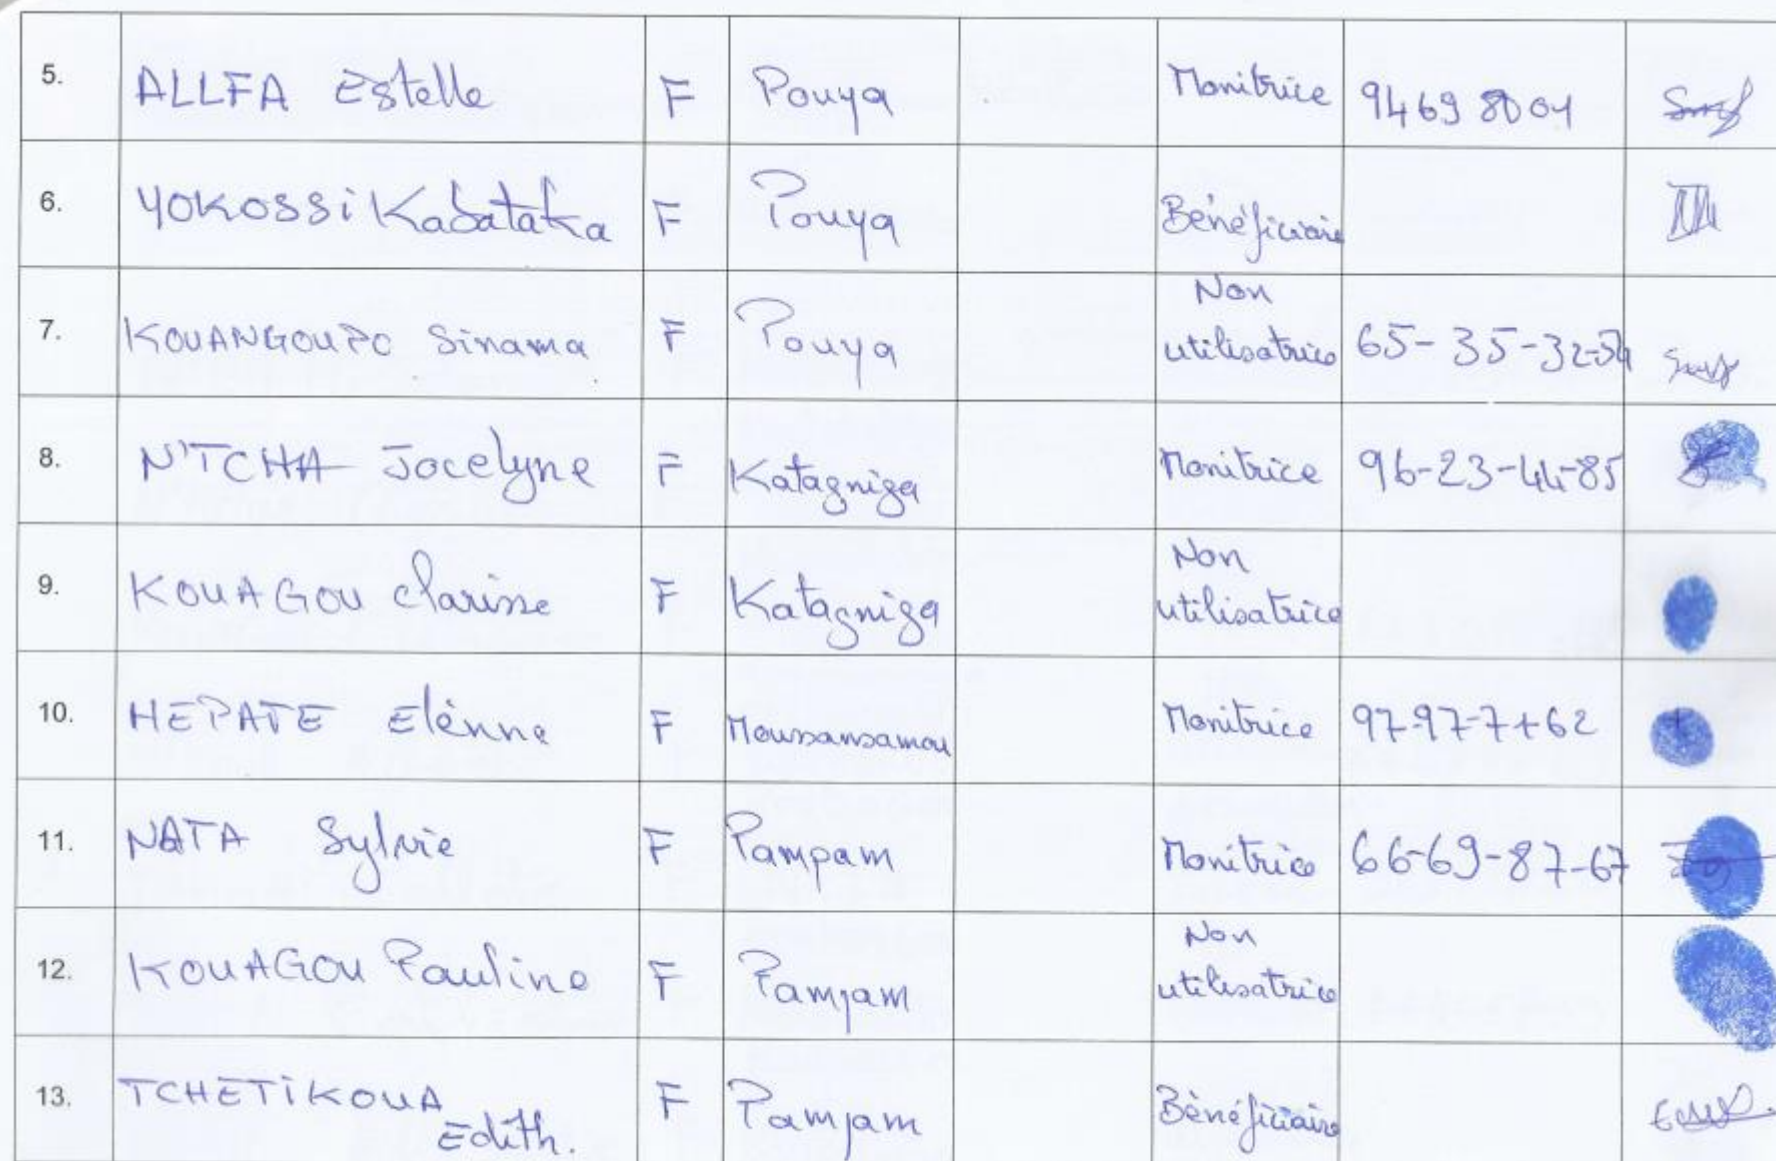 5. ALLFA Estelle F Pouya Monitrice 9469 8001
6. YOKOSSi Kabataka F Pouya Bénéficiaire
7. KOUANGOUPO Sinama F Pouya Non utilisatrice 65-35-32-54
8. N'TCHA Jocelyne F Katagniga Monitrice 96-23-44-85
9. KOUAGOU clarisse F Katagniga Non utilisatrice
10. HEPATE Elènne F Moussansamou Monitrice 97-97-7+62
11. NATA Sylvie F Pampam Monitrice 66-69-87-67
12. KOUAGOU Pauline F Pampam Non utilisatrice
13. TCHETiKOUA Edith. F Pampam Bénéficiaire